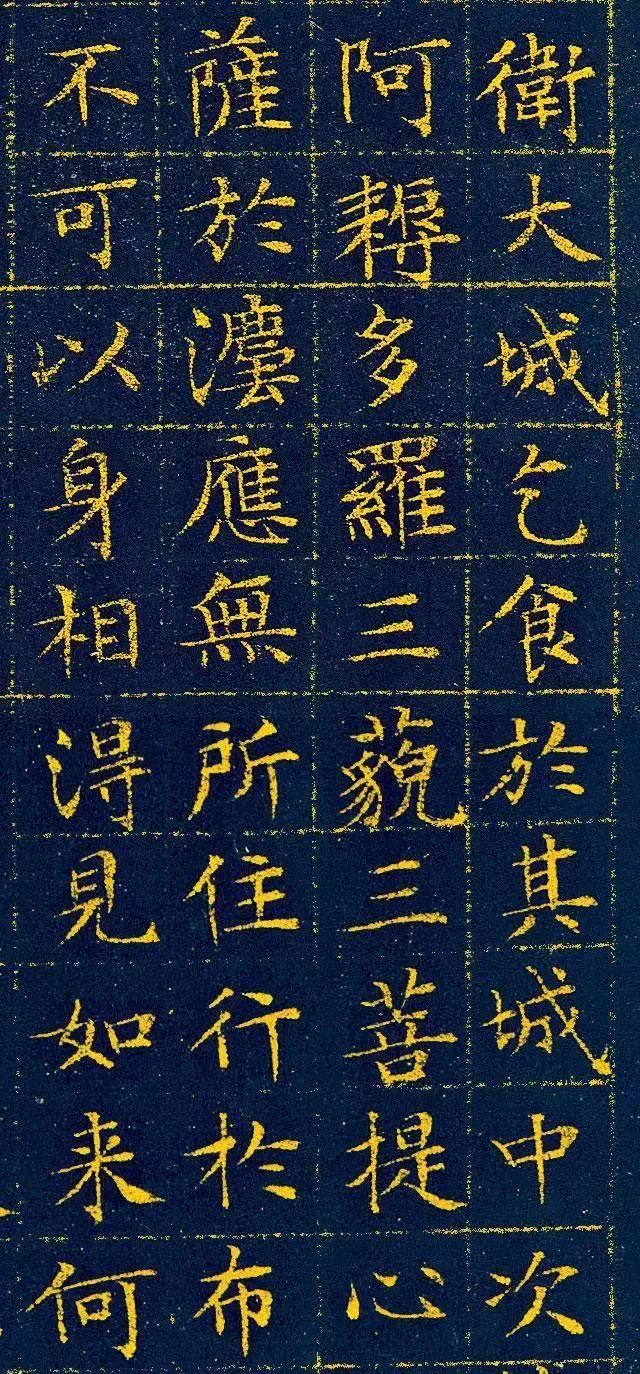 衛大城乞食於其城中次
阿耨多羅三藐三菩提心
薩於法應無所住行於布
不可以身相得見如来何